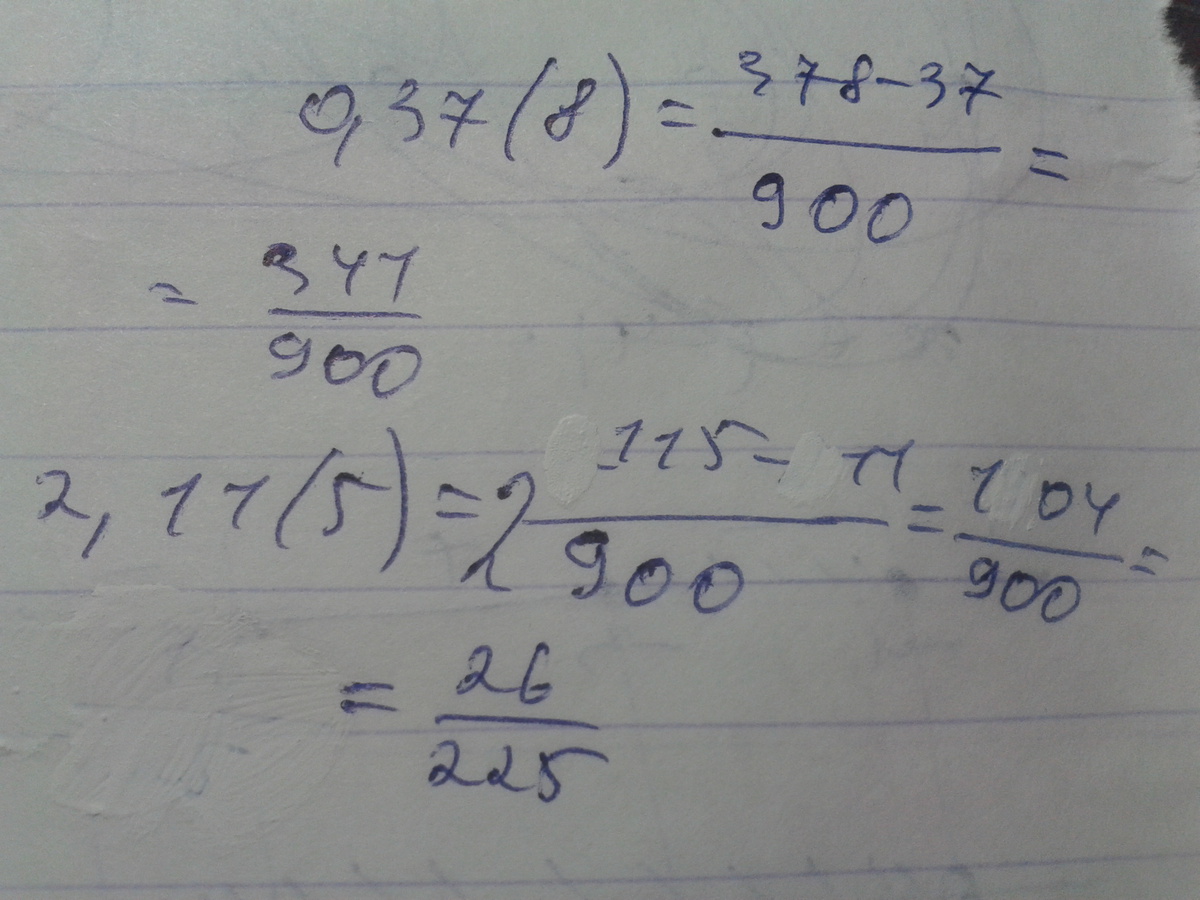 0,37(8) = \frac{378-37}{900} =
= \frac{341}{900}
2,11(5) = 2\frac{115-11}{900} = \frac{104}{900} =
= \frac{26}{225}